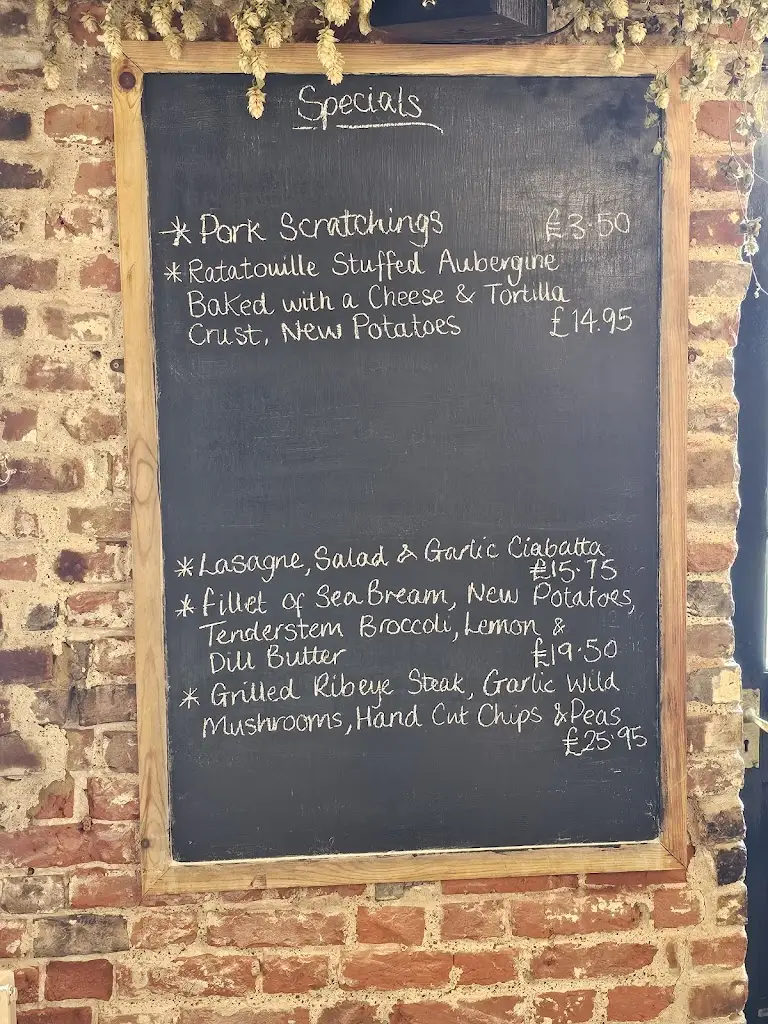 Specials
* Pork Scratchings £3.50
* Ratatouille Stuffed Aubergine
Baked with a Cheese & Tortilla
Crust, New Potatoes £14.95
* Lasagne, Salad & Garlic Ciabatta
£15.75
* Fillet of Sea Bream, New Potatoes,
Tenderstem Broccoli, Lemon &
Dill Butter £19.50
* Grilled Ribeye Steak, Garlic Wild
Mushrooms, Hand Cut Chips & Peas
£25.95